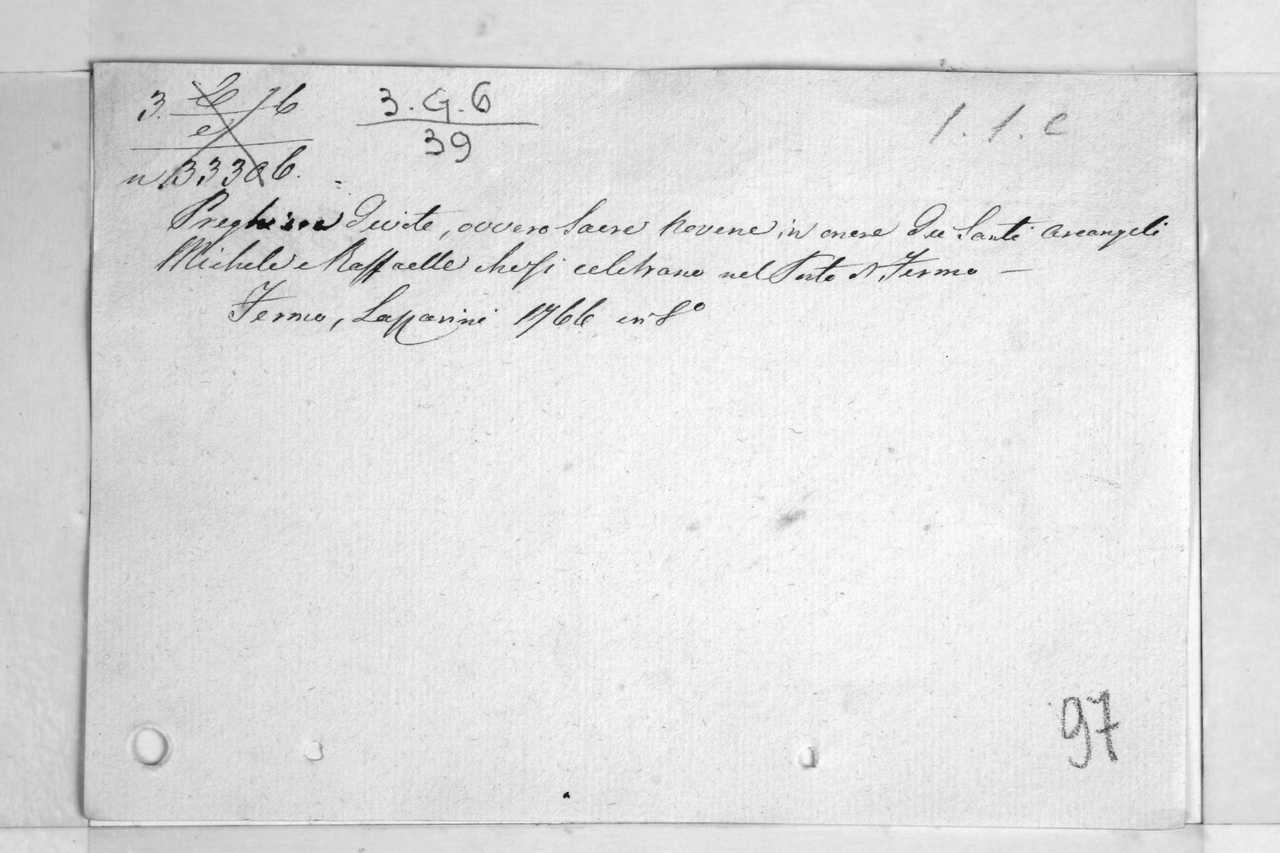 3. 6 3.G.6 1.1.c
e 39
n 13306.
Preghiere Divote, ovvero Sacre Novene in onore dei Santi Arcangeli
Michele e Raffaelle che si celebrano nel Porto di Fermo —
Fermo, Lazzarini 1766 in 8º
97